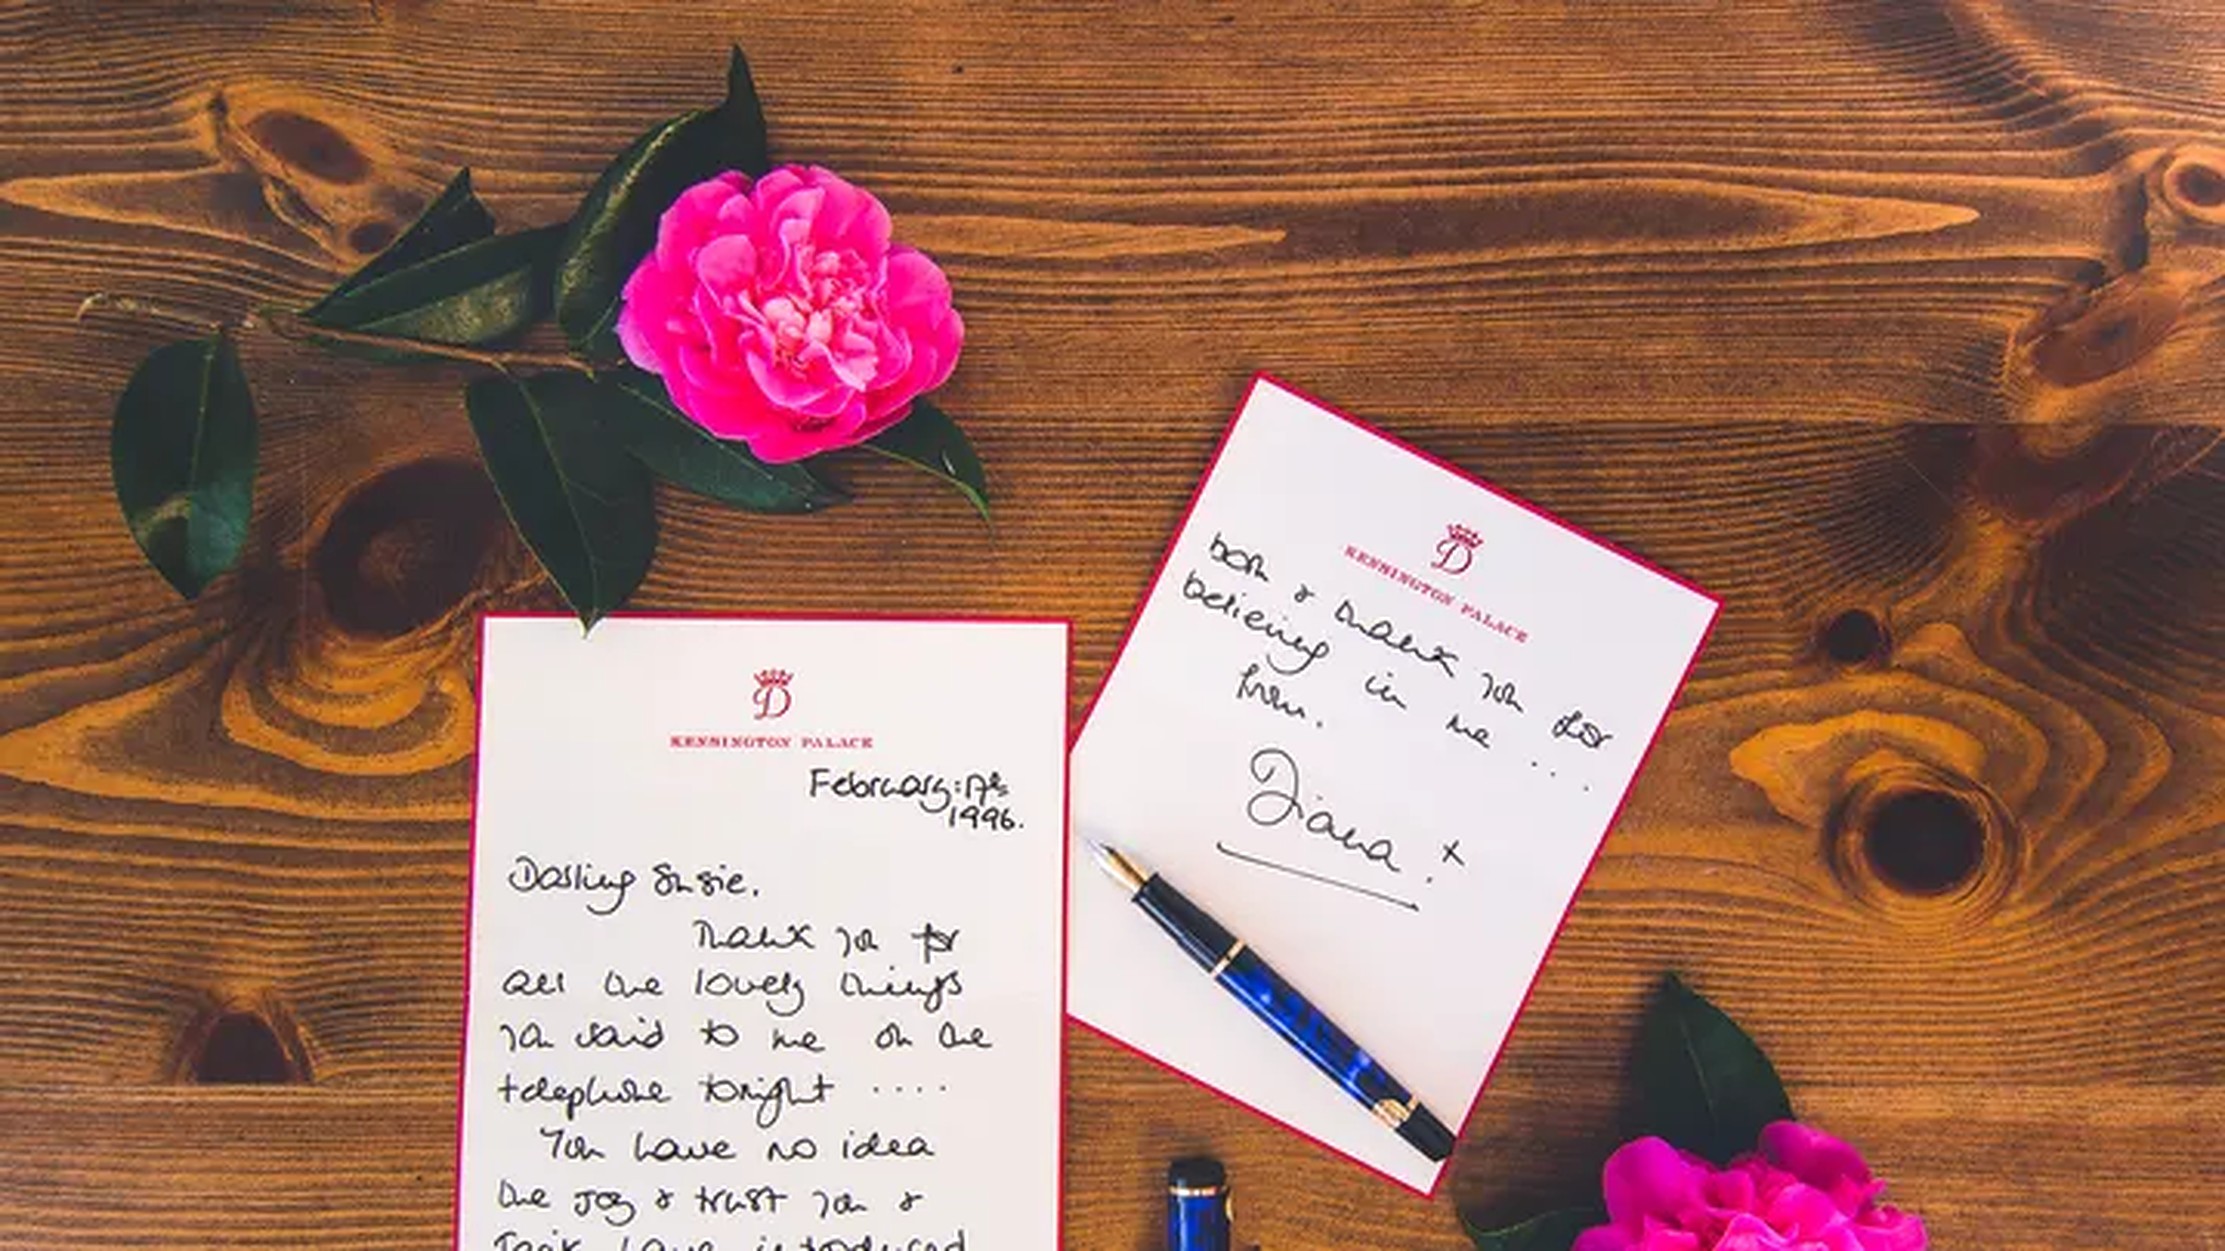 D
KENSINGTON PALACE
February: 17th
1996.
Darling Susie,
Thank you for
all the lovely things
you said to me on the
telephone tonight ....
You have no idea
the joy & trust you &
have introduced
D
KENSINGTON PALACE
both & thank you for
believing in me ....
from.
Diana. x